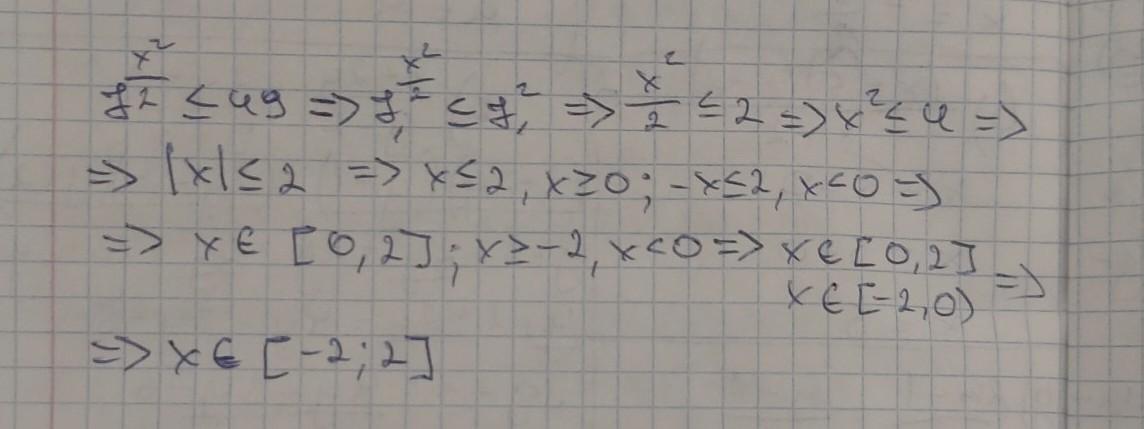 7^{\frac{x^2}{2}} ≤ 49 => 7^{\frac{x^2}{2}} ≤ 7^2 => \frac{x^2}{2} ≤ 2 => x^2 ≤ 4 =>
=> |x| ≤ 2 => x ≤ 2, x ≥ 0; -x ≤ 2, x < 0 =>
=> x ∈ [0,2]; x ≥ -2, x < 0 => x ∈ [0,2]
x ∈ [-2,0) =>
=> x ∈ [-2;2]